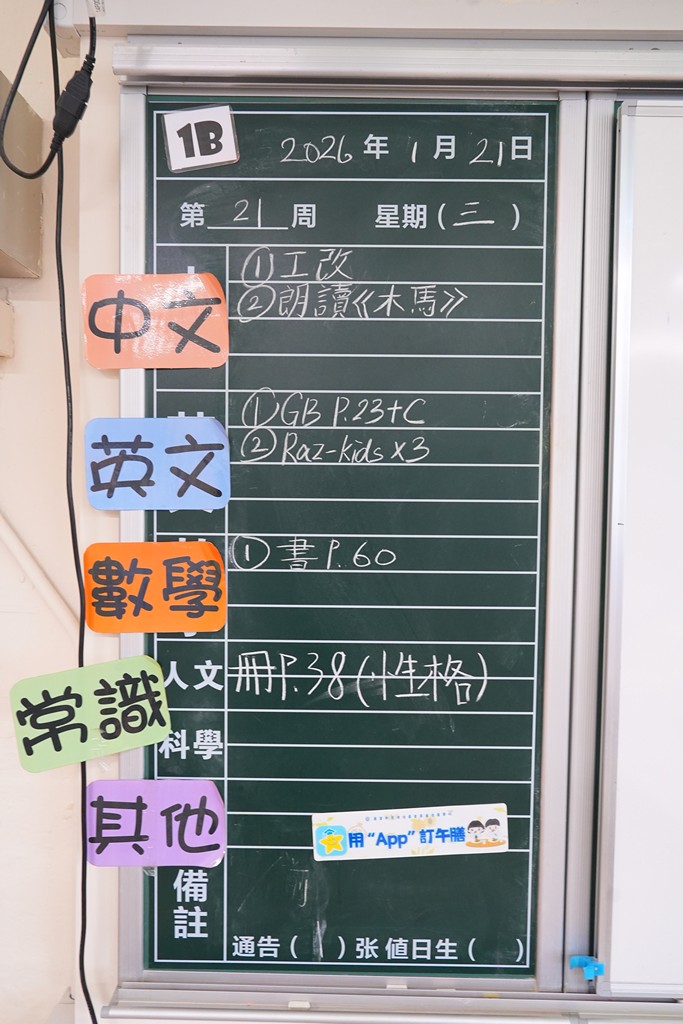 1B
2026 年 1 月 21 日
第 21 周 星期 ( 三 )
中文
① 工改
② 朗讀《木馬》
英文
① GB P.23+C
② Raz-kids x3
數學
① 書 P.60
人文 冊P.38 (性格)
常識
科學
其他
用 “App” 訂午膳
備註
通告 ( ) 张 值日生 ( )